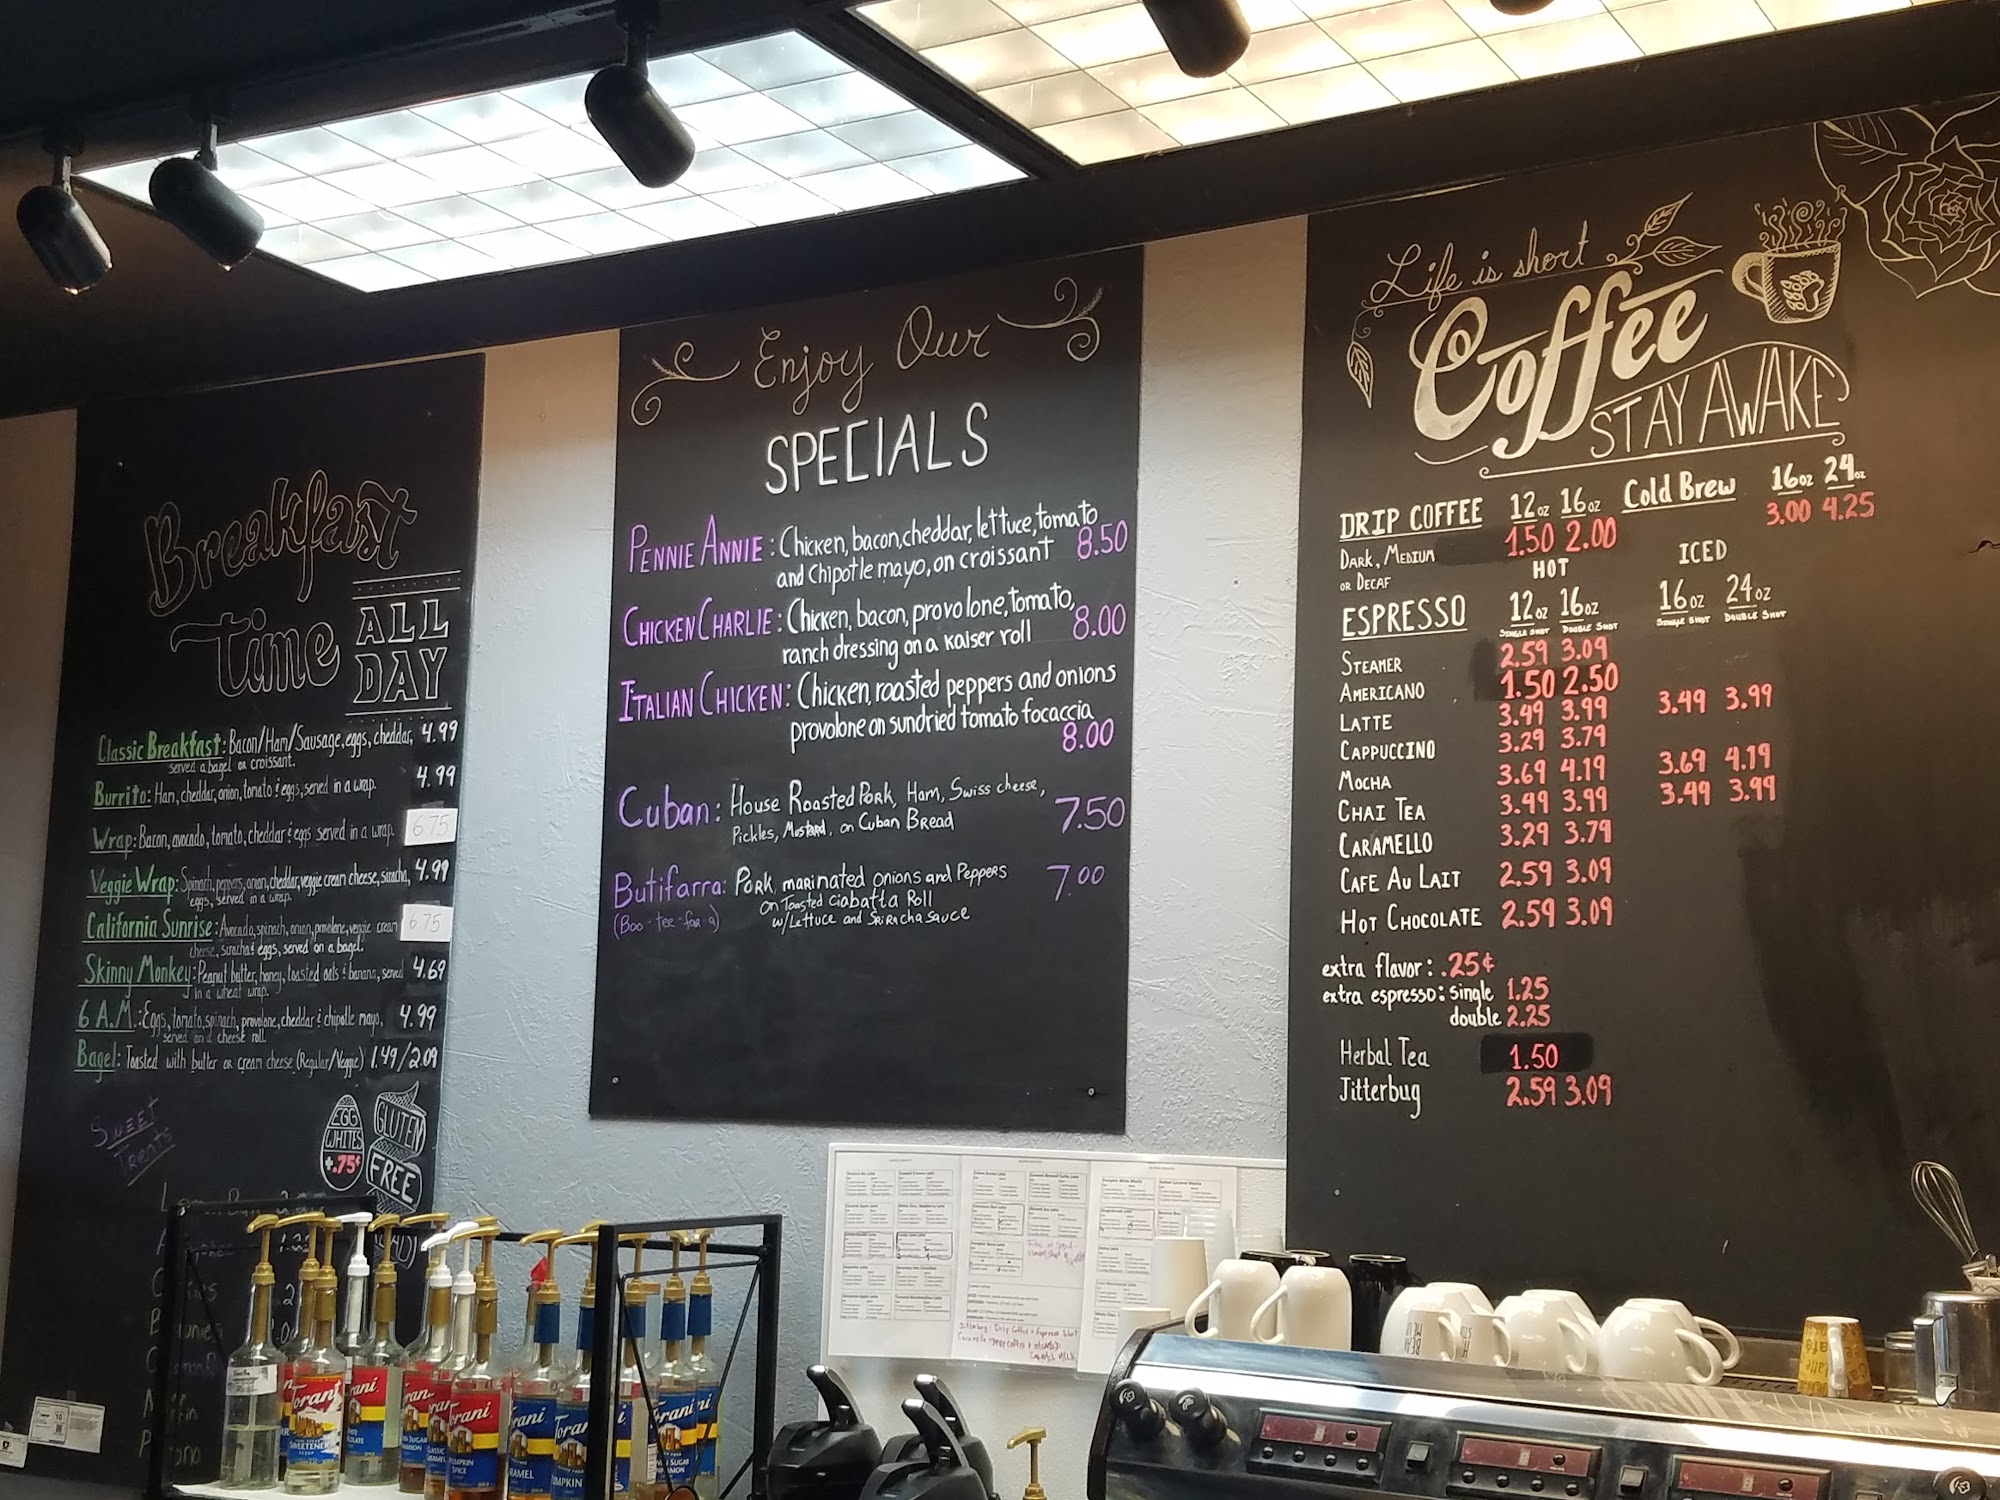 Breakfast
Time
ALL
DAY
Classic Breakfast: Bacon/Ham/Sausage, eggs, cheddar, 4.99
served a bagel or croissant.
Burrito: Ham, cheddar, onion, tomato & eggs, served in a wrap. 4.99
Wrap: Bacon, avocado, tomato, cheddar & eggs served in a wrap. 6.75
Veggie Wrap: Spinach, peppers, onion, cheddar, veggie cream cheese, siracha, 4.99
eggs, served in a wrap.
California Sunrise: Avocado, spinach, onion, provolone, veggie cream 6.75
cheese, siracha & eggs, served on a bagel.
Skinny Monkey: Peanut butter, honey, toasted oats & banana, served 4.69
in a wheat wrap.
6 A.M.: Eggs, tomato, spinach, provolone, cheddar & chipotle mayo, 4.99
served on a cheese roll.
Bagel: Toasted with butter or cream cheese (Regular/Veggie) 1.49/2.09
SWEET
Treats
EGG
WHITES
+.75¢
GLUTEN
FREE
Enjoy Our
SPECIALS
PENNIE ANNIE: Chicken, bacon, cheddar, lettuce, tomato
and Chipotle mayo, on croissant 8.50
CHICKEN CHARLIE: Chicken, bacon, provolone, tomato,
ranch dressing on a kaiser roll 8.00
ITALIAN CHICKEN: Chicken, roasted peppers and onions
provolone on sundried tomato focaccia
8.00
Cuban: House Roasted Pork, Ham, Swiss cheese,
Pickles, Mustard, on Cuban Bread 7.50
Butifarra: Pork, marinated onions and Peppers 7.00
(Boo-tee-far a) on Toasted ciabatta Roll
w/Lettuce and Sriracha sauce
Life is short
Coffee
STAY AWAKE
DRIP COFFEE 12oz 16oz Cold Brew 16oz 24oz
1.50 2.00 3.00 4.25
DARK, MEDIUM
OR DECAF
HOT ICED
ESPRESSO 12oz 16oz 16oz 24oz
SINGLE SHOT DOUBLE SHOT SINGLE SHOT DOUBLE SHOT
STEAMER 2.59 3.09
AMERICANO 1.50 2.50
LATTE 3.49 3.99 3.49 3.99
CAPPUCCINO 3.29 3.79
MOCHA 3.69 4.19 3.69 4.19
CHAI TEA 3.49 3.99 3.49 3.99
CARAMELLO 3.29 3.79
CAFE AU LAIT 2.59 3.09
HOT CHOCOLATE 2.59 3.09
extra flavor: .25¢
extra espresso: single 1.25
double 2.25
Herbal Tea 1.50
Jitterbug 2.59 3.09
Torani
SWEETENER
Torani
PUMPKIN
SPICE